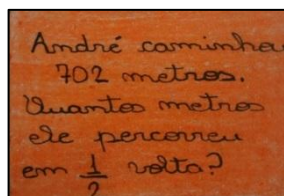 André caminhou
702 metros.
Quantos metros
ele percorreu
em 1/2 volta?